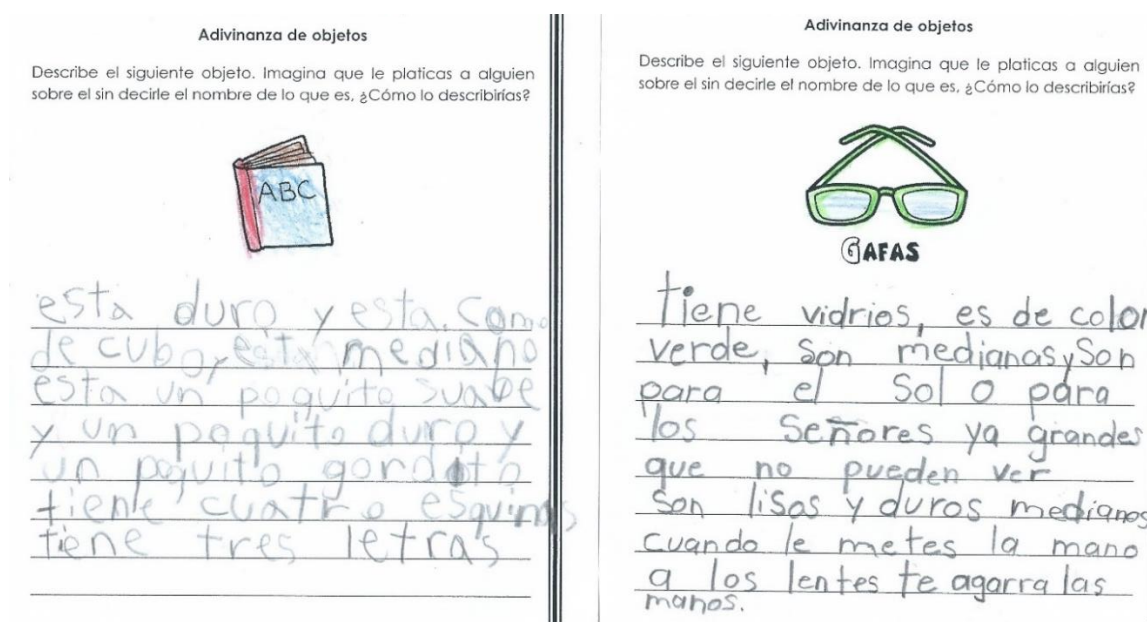 Adivinanza de objetos
Describe el siguiente objeto. Imagina que le platicas a alguien
sobre el sin decirle el nombre de lo que es, ¿Cómo lo describirías?
ABC
esta duro y esta. Como
de cubo, esta mediano
esta un poquito suabe
y un poquito duro y
un poquito gordito
tiene cuatro esquinas
tiene tres letras
Adivinanza de objetos
Describe el siguiente objeto. Imagina que le platicas a alguien
sobre el sin decirle el nombre de lo que es, ¿Cómo lo describirías?
GAFAS
tiene vidrios, es de color
verde, son medianas, Son
para el Sol o para
los Señores ya grandes
que no pueden ver
Son lisos y duros medianos
cuando le metes la mano
a los lentes te agarra las
manos.